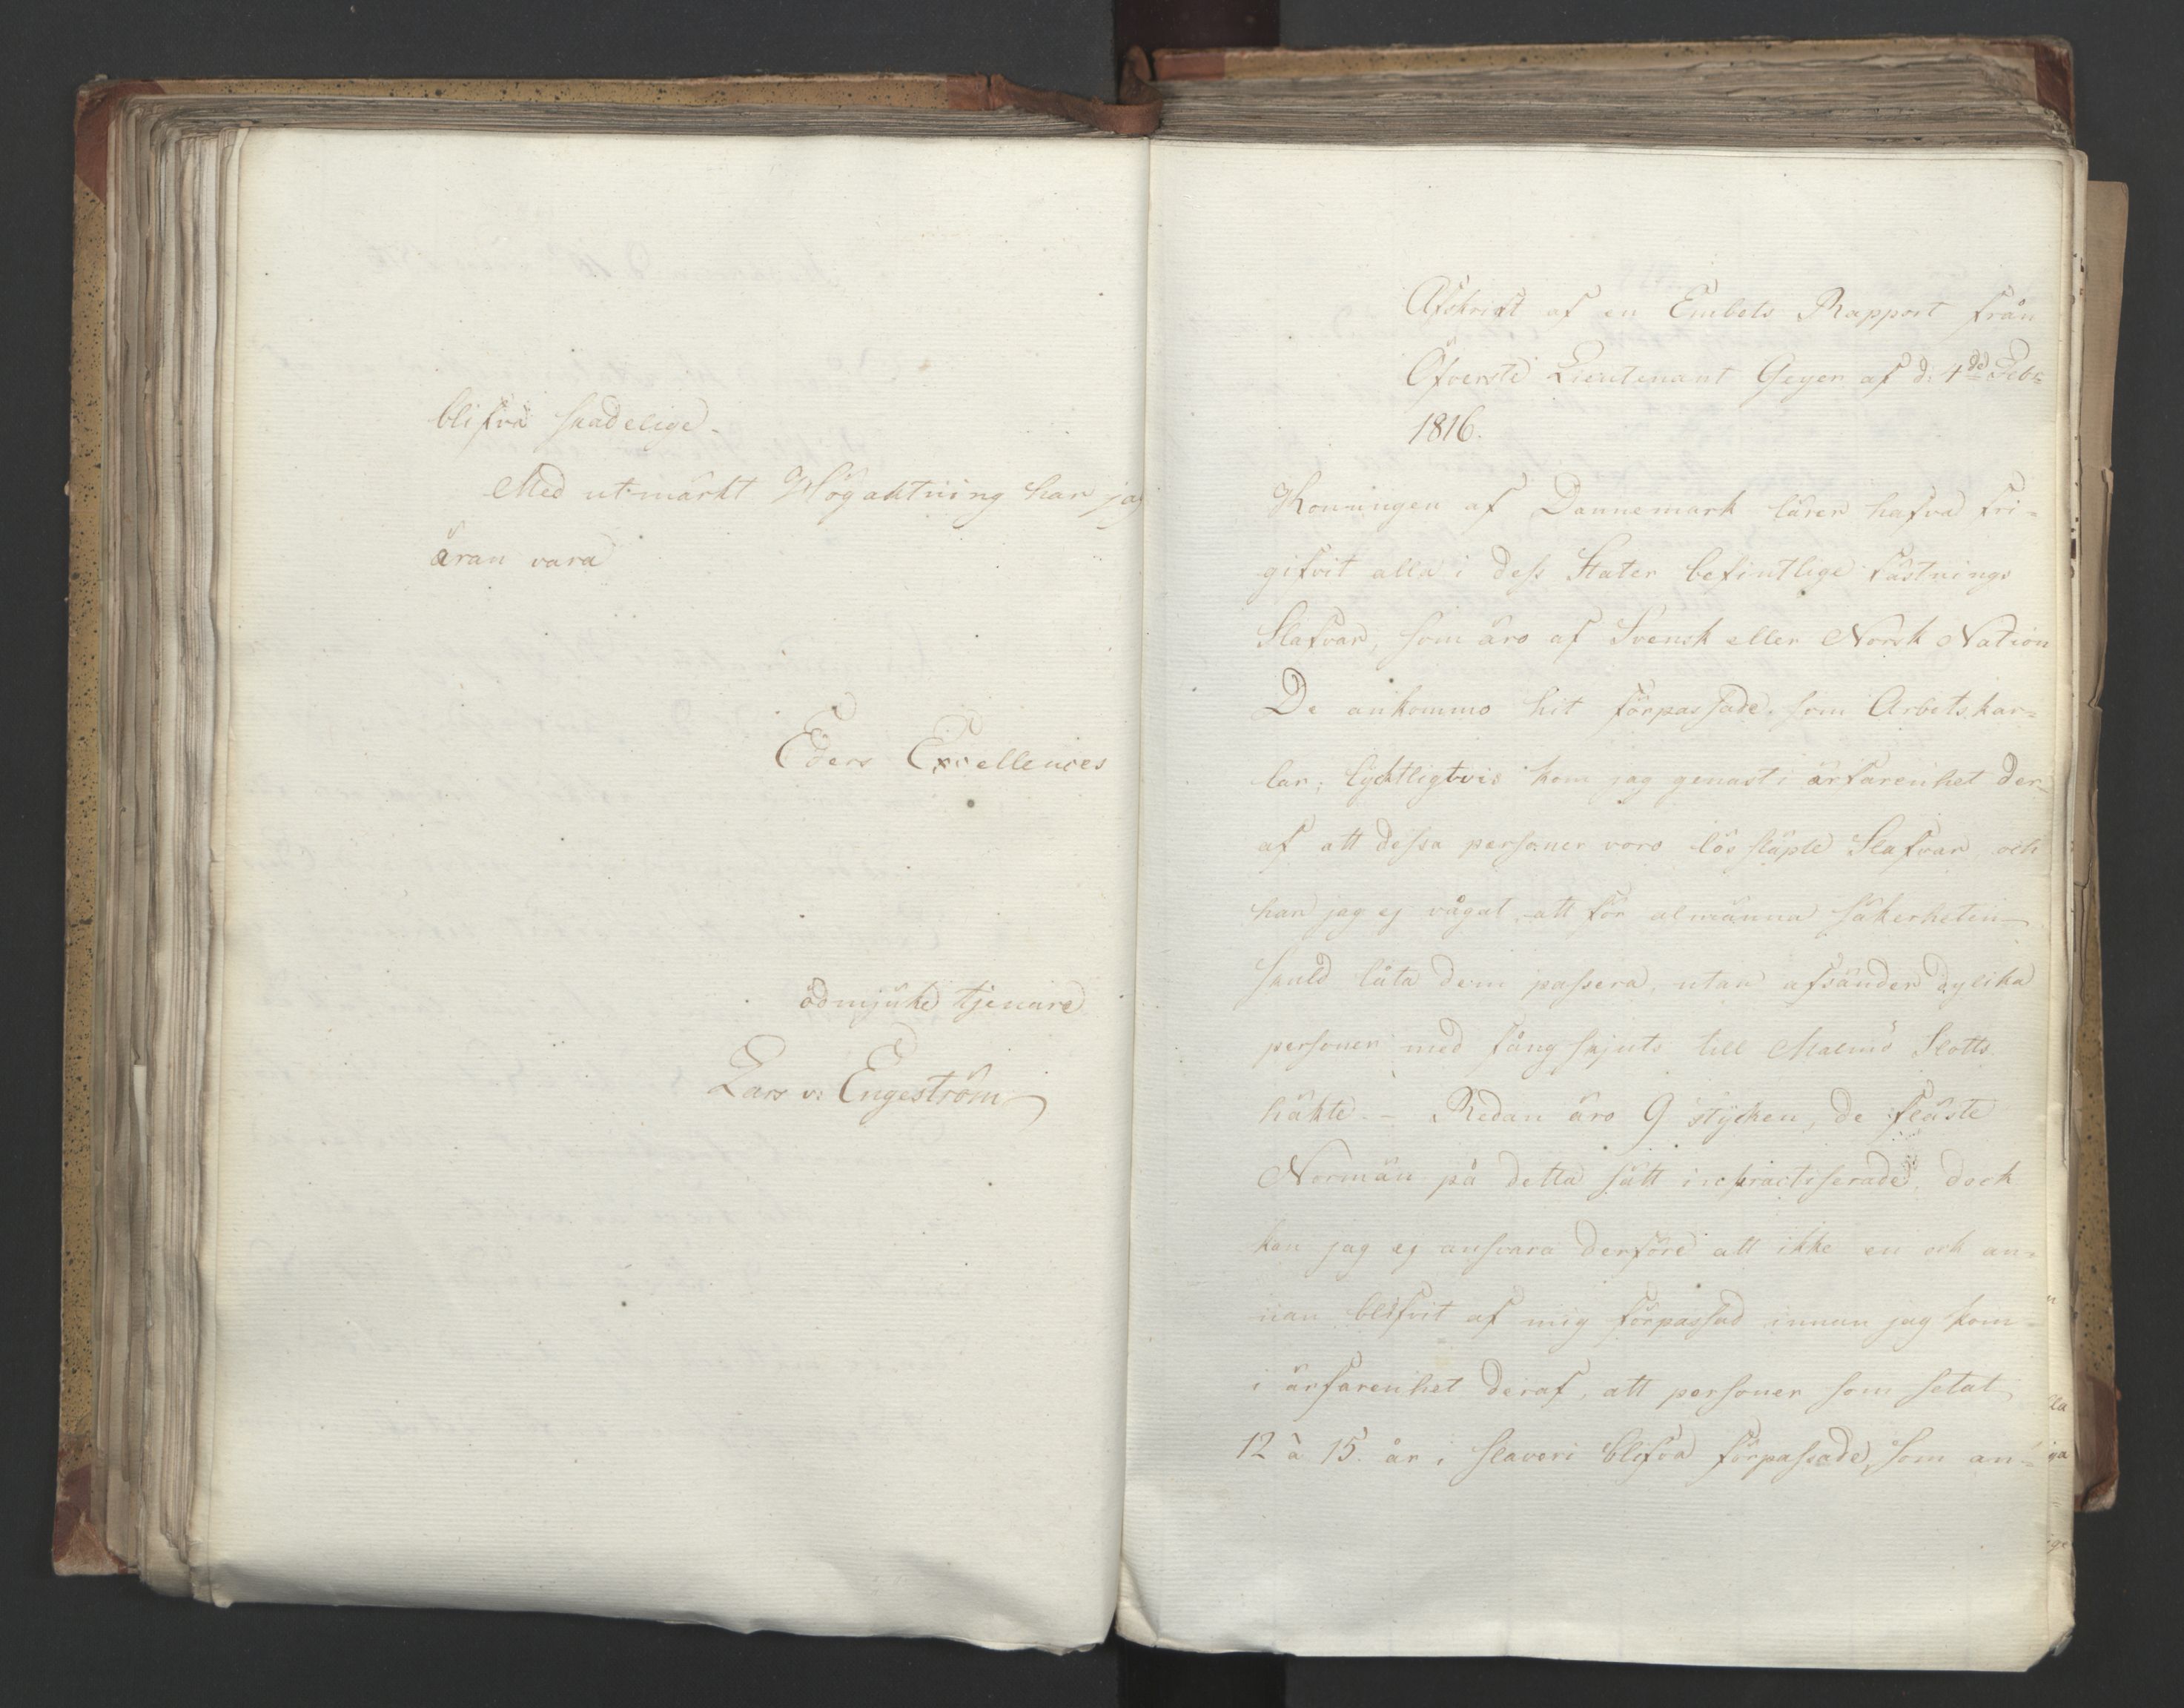 blifva skadelige.
Med utmärkt Högaktning har jag
äran vara
Eders Excellences
ödmjuke tjenare
Lars v: Engeström
Afskrift af en Embets Rapport från
Öfverste Lieutenant Geyer af d: 4de Febr
1816.
Konungen af Dannemark lärer hafva fri=
gifvit alla i dess Stater befintlige fästnings
Slafvar, som äro af Svensk eller Norsk Nation
De ankommo hit förpassade, som Arbetskar=
lar; lycktligtvis kom jag genast i ärfarenhet der=
af att dessa personer voro lössläpte Slafvar, och
har jag ej vågat, att för almänna säkerheten
skuld låta dem passera, utan afsänder dylika
personer med fångskjuts till Malmö Slotts
häkte. - Redan äro 9 stycken, de fläste
Normän på detta sätt inpractiserade, dock
kan jag ej ansvara derföre att ikke en och an=
nan blifvit af mig förpassad innan jag kom
i ärfarenhet deraf, att personer som setat
12 à 15 år i slaveri blifva förpassade, som an=